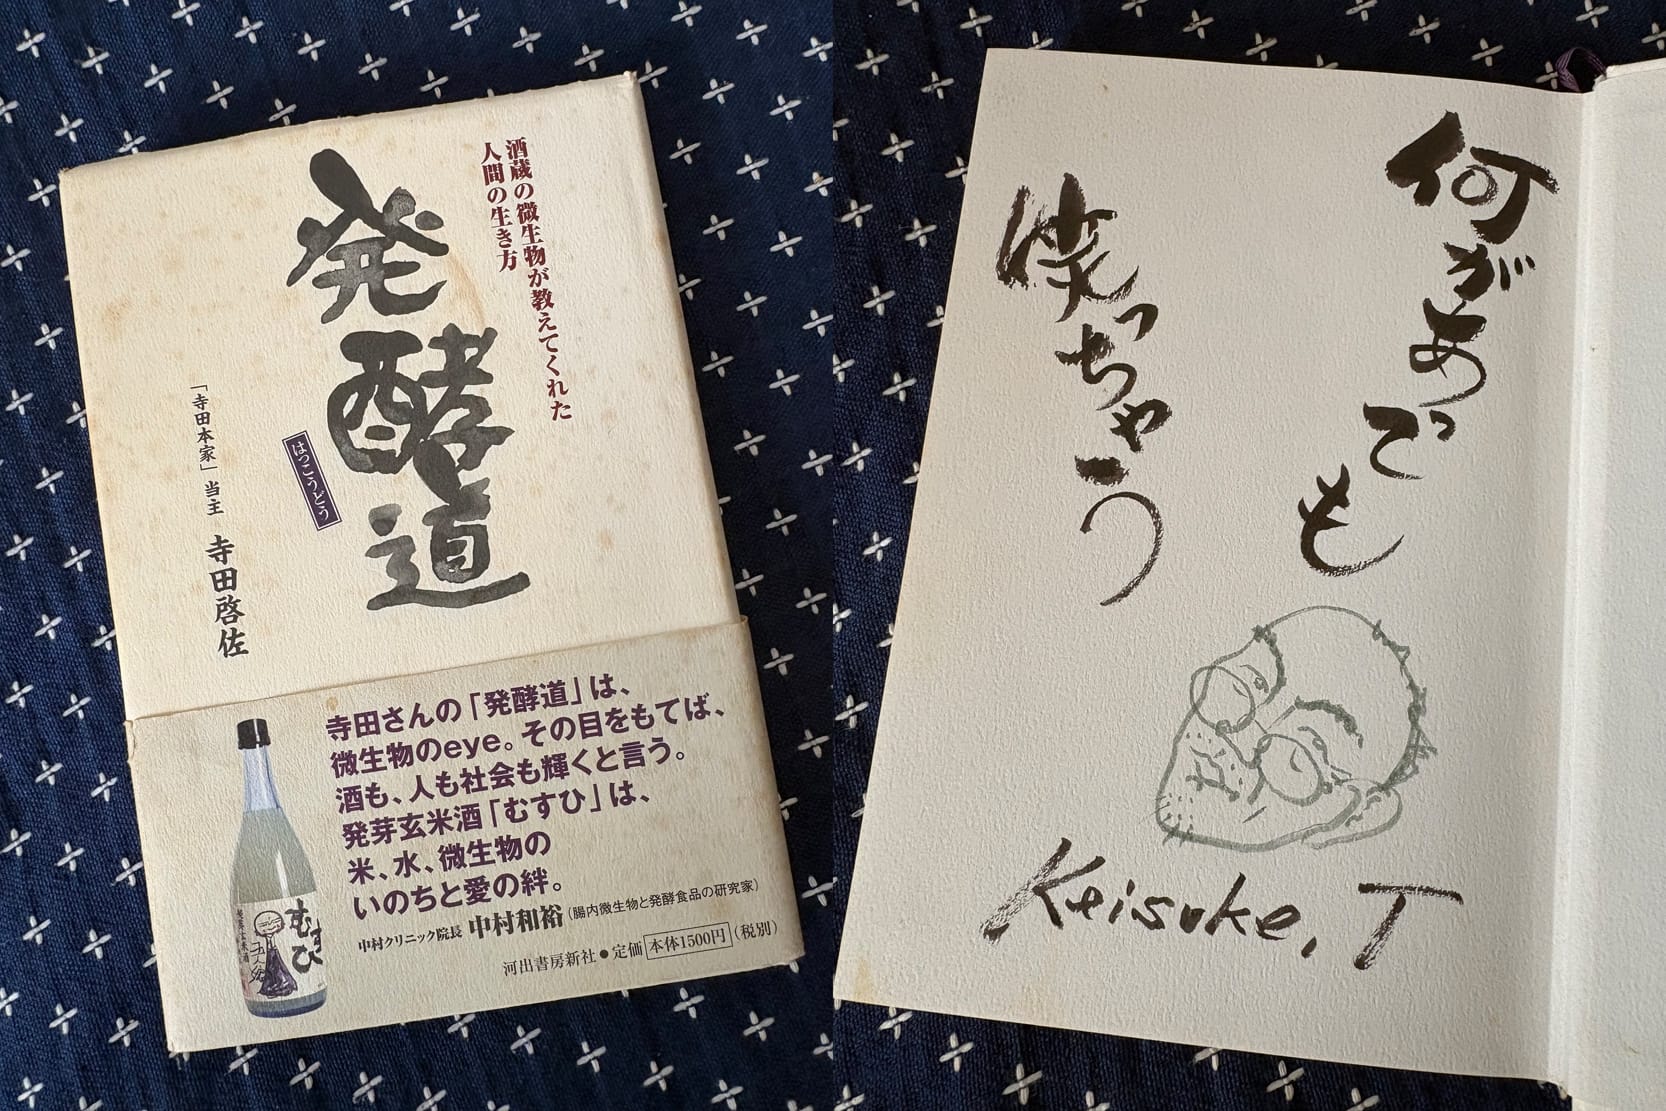 酒蔵の微生物が教えてくれた
人間の生き方
発酵道
はっこうどう
「寺田本家」当主 寺田啓佐
寺田さんの「発酵道」は、
微生物のeye。その目をもてば、
酒も、人も社会も輝くと言う。
発芽玄米酒「むすひ」は、
米、水、微生物の
いのちと愛の絆。
中村クリニック院長 中村和裕(腸内微生物と発酵食品の研究家)
河出書房新社●定価 本体1500円(税別)
むすひ
発芽玄米酒
何があっても
笑っちゃう
Keisuke.T